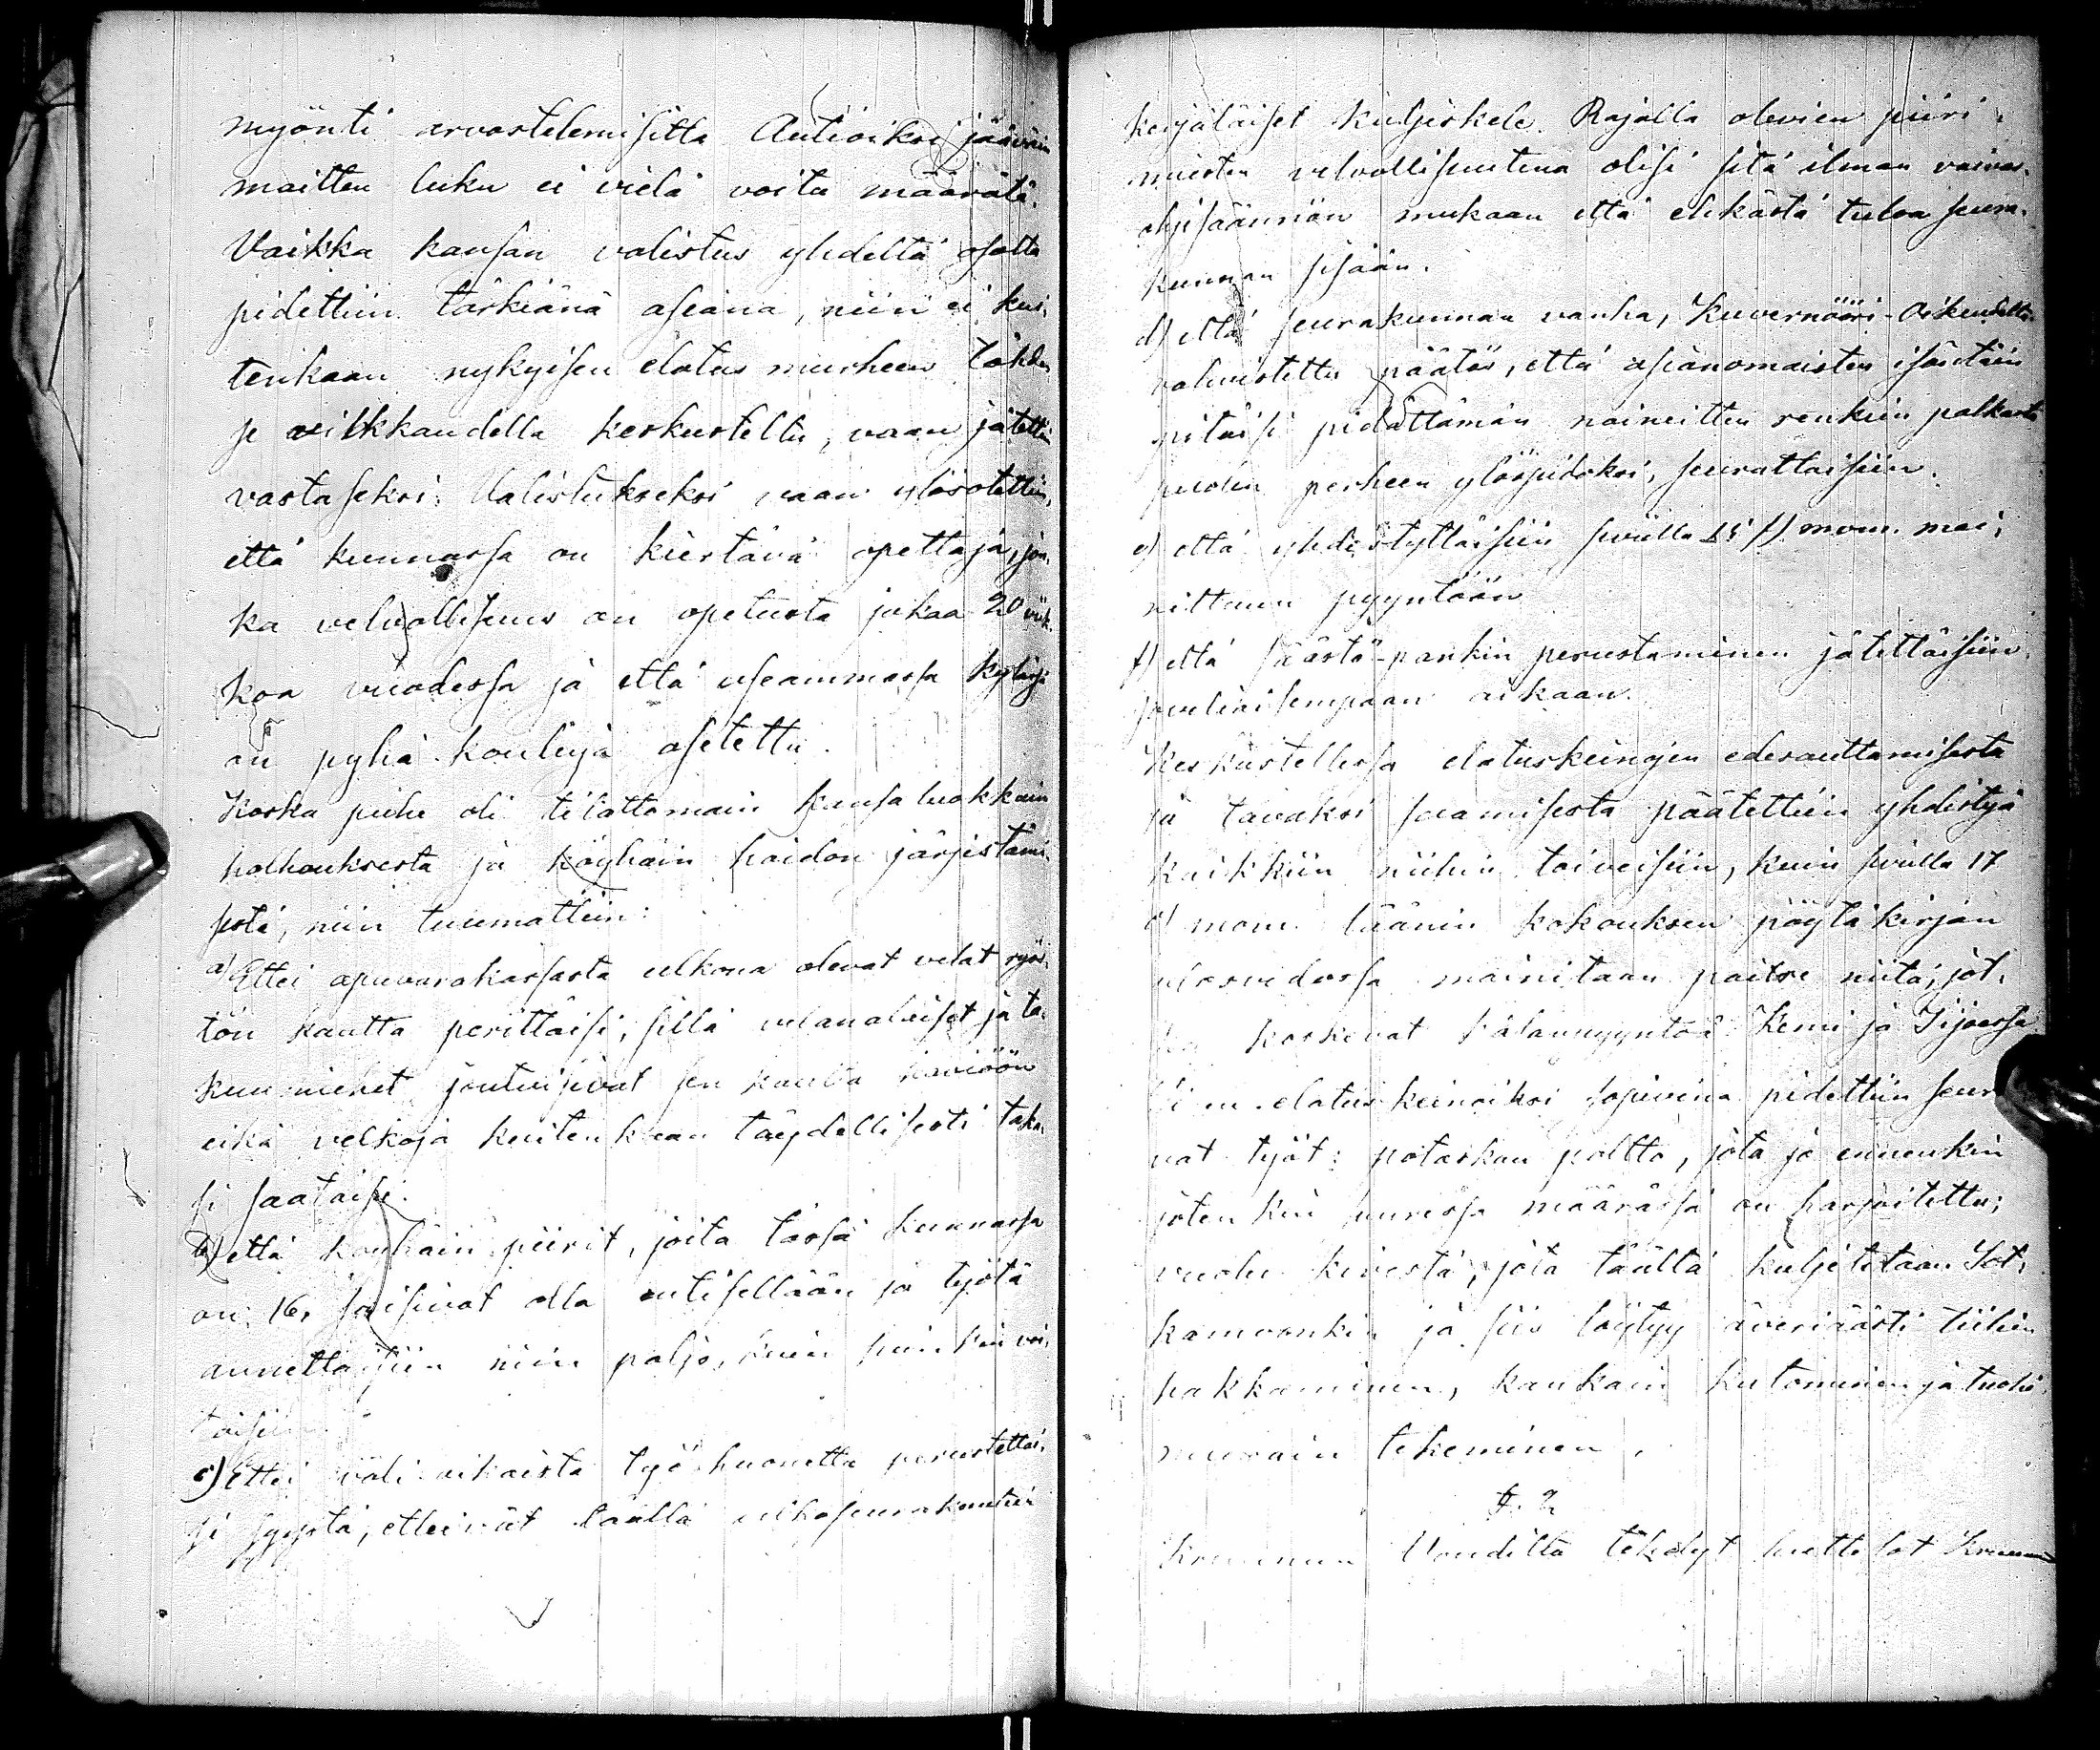 myönti arvostelemisitta Autioiksi jääväin
maitten luku ei vielä voita määrätä.
Vaikka kansan valistus yhdeltä osalta
pidettiin tärkiänä asiana, niin ei kui,
tenkaan nykyisen elatus murheen tähden
se vilkkaudella keskusteltu, vaan jätettiin
vastaseksi. Valistukseksi vaan ylösotettiin,
että kunnassa on kiertävä opettaja, jon,
ka velvollisuus on opetusta jakaa 20 viik,
koa vuodessa ja että useammassa kylässä
on pyhä-kouluja asetettu.
Koska puhe oli tilattomain kansa luokkain
holhouksesta ja köyhäin hoidon järjestämi,
sestä, niin tuumattiin:
a) Ettei apuvarakassasta ulkona olevat velat ryös,
tön kautta perittäisi, sillä velanalaiset ja ta,
kuu miehet joutuisivat sen kautta häviöön
eikä velkoja kuitenkaan täydellisesti taka,
si saataisi.
b) että köyhäin piirit, joita tässä kunnassa
on 16, saisivat olla entisellään ja työtä
annettaisiin niin paljo, kuin suinkin voi,
taisiin.
c) Ettei väli-aikaista työ-huonetta perustettai,
si syystä, etteivät täällä ulkoseurakuntain
kerjäläiset kuljeskele. Rajalla olevien piiri,
miesten velvollisuutena olisi sitä ilman vaivas,
ohjesäännön mukaan että ehkästä tuloa seura,
kunnan sisään.
d) että seurakunnan vanha, Kuvernööri-Oikeudelta
vahvistettu päätös, että asianomaisten isäntäin
pitäisi pidättämän naineitten renkiin palkasta
puolen perheen ylöspidoksi, seurattaisiin.
e) että yhdistyttäisiin sivulla 15 f) mom. mai,
nittuun pyyntöön
f) että säästö-pankin perustaminen jätettäisiin
soveliaisempaan aikaan.
Keskustellessa elatuskeinojen edesauttamisesta
ja tavaksi saamisesta päätettiin yhdistyä
kaikkiin niihin toiveisiin, kuin sivulla 17
c) mom. läänin kokouksen pöytäkirjan
ulosvedossa mainitaan paitse niitä, jot,
ka koskevat kalanmyyntöä Kemi ja Iijoessa
m. elatus keinoiksi sopivina pidettiin seuraa
vat työt: potaskan poltto, jota jo ennenkin
jotenkin suuressa määrässä on harjoitettu;
vuolu kivestä, jota täältä kuljetetaan Sot,
kamoonkin ja siis löytyy äveriäästi tiilien
hakkaminen, kankain kutominen ja tuohi,
tekeminen.
§. 2
Kruunun Voudilta tehdyt luettelot Kruunun